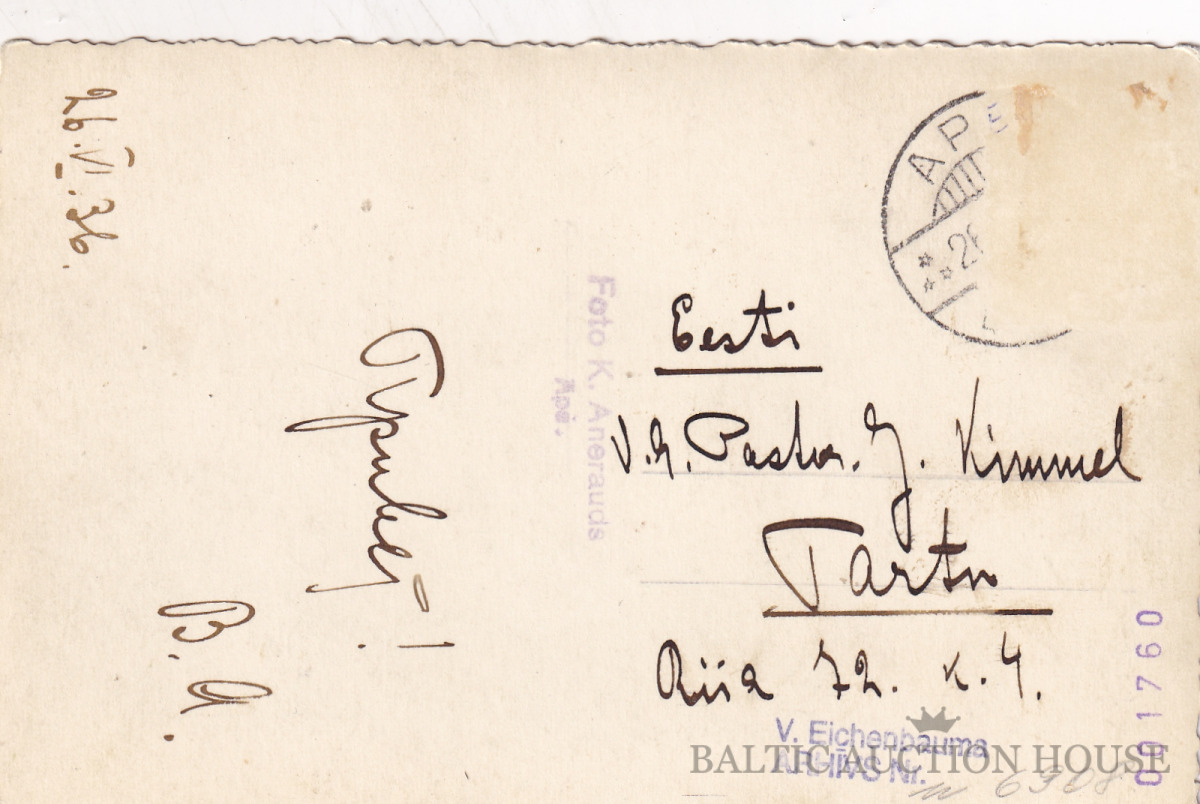 26.VI.36.
Привет!
В. А.
Foto K. Anerauds
Apē.
APE
28
Eesti
V.A. Pastor. J. Kimmel
Tartu
Riia 72. k. 4.
V. Eichenbauma
ARHĪVS Nr.
6908
001760
BALTIC AUCTION HOUSE